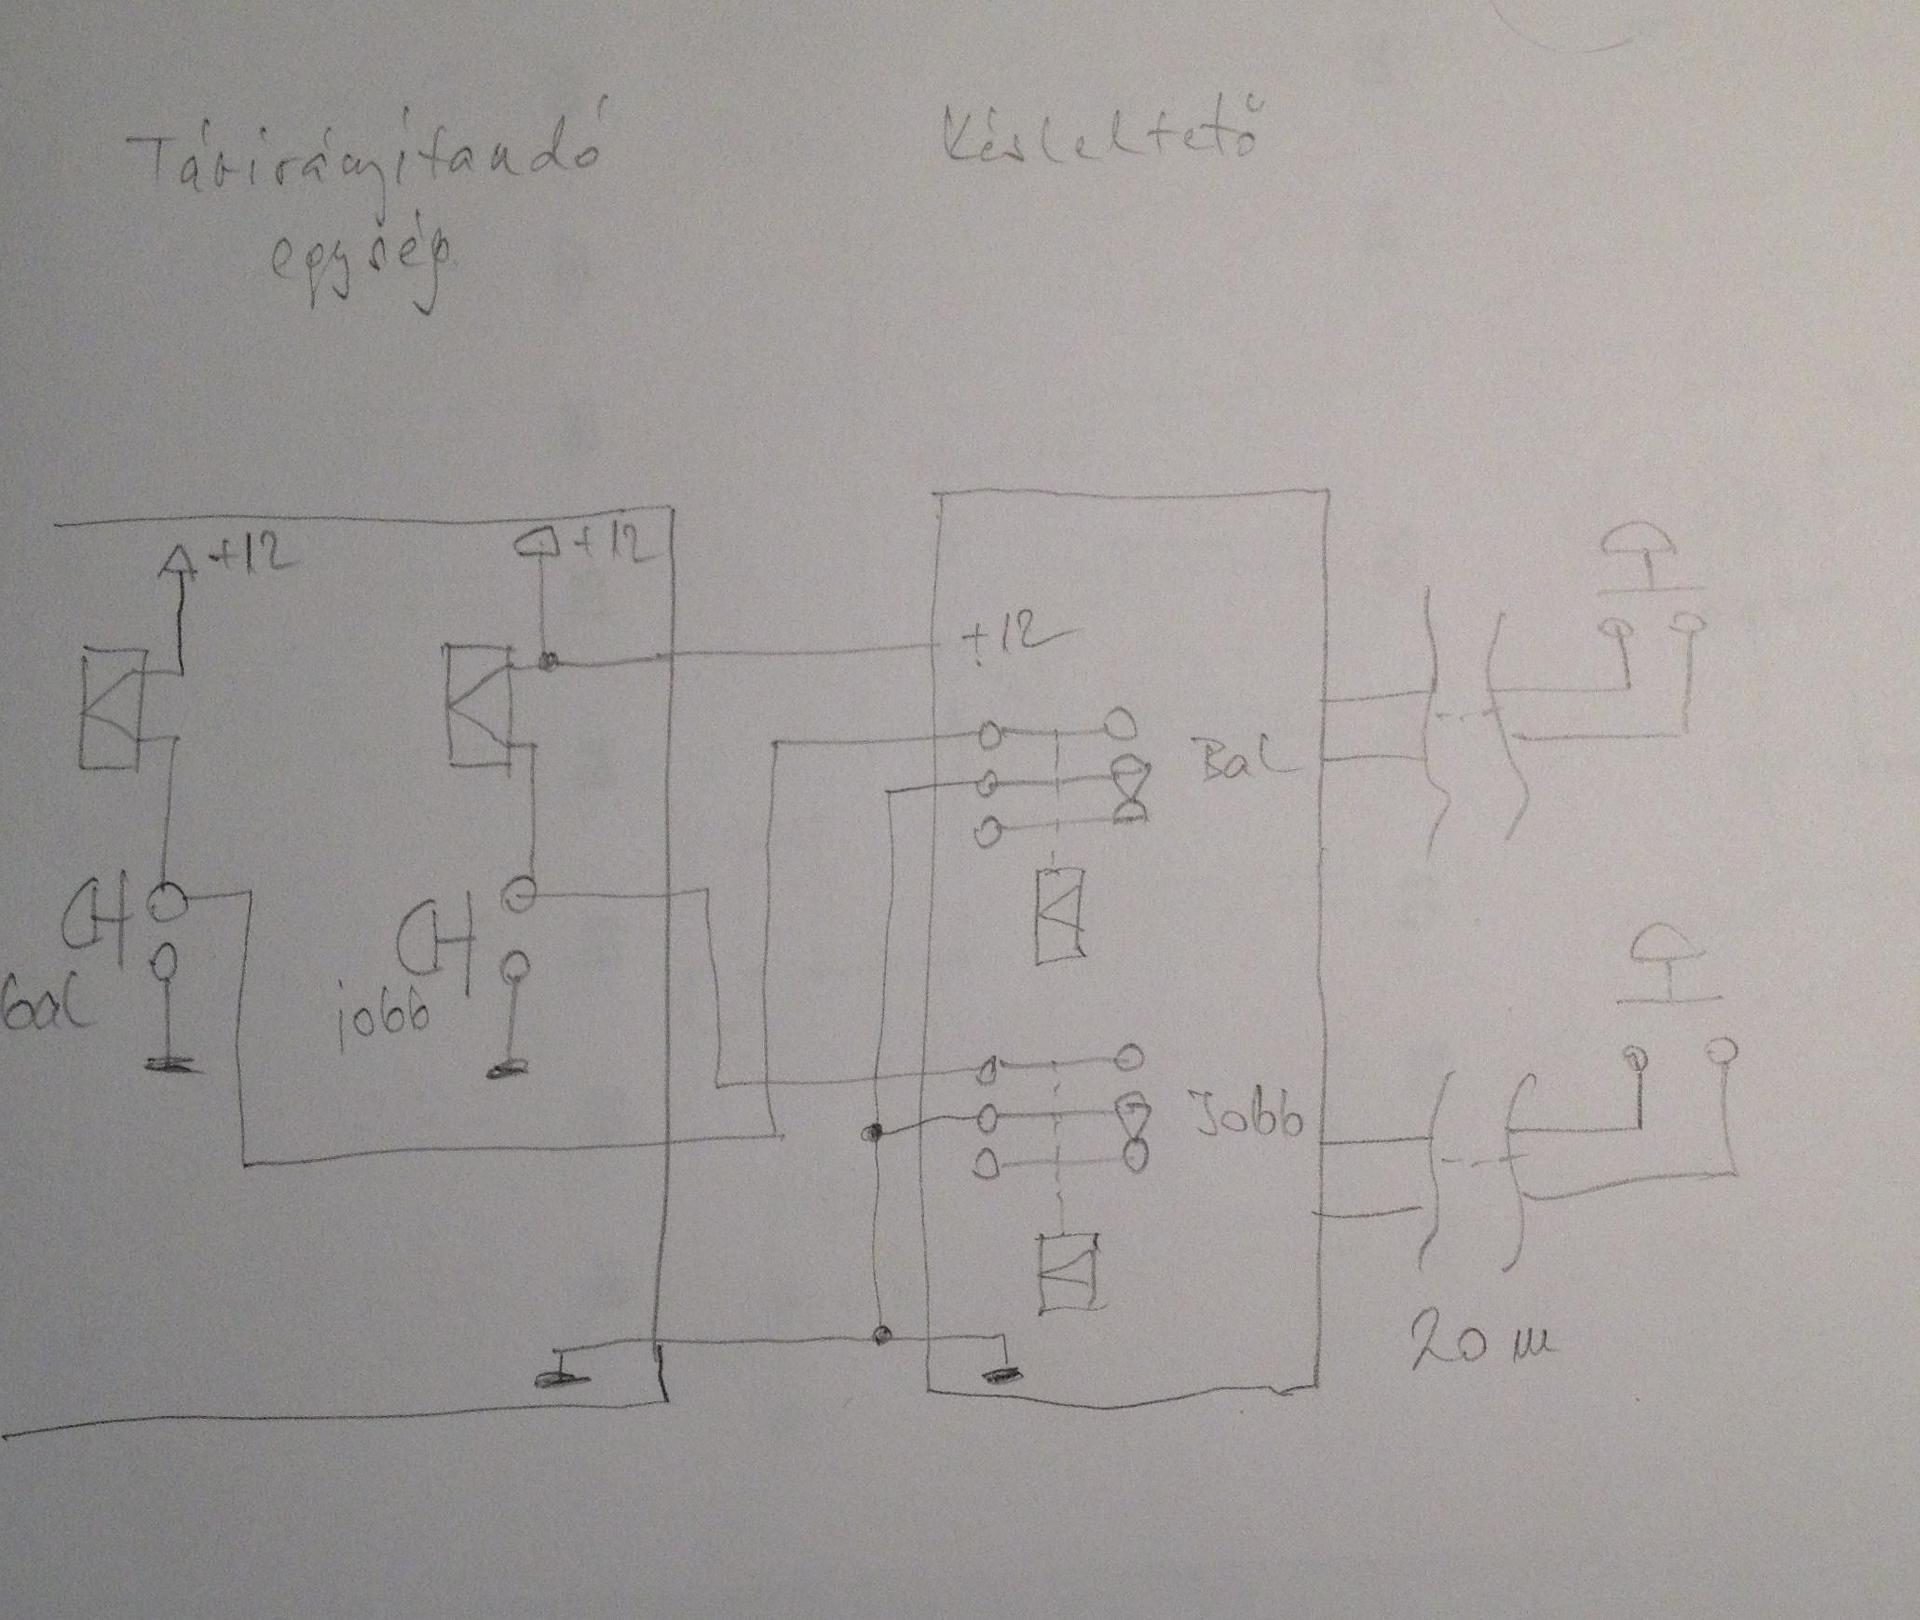 Távirányítandó
egység
Késleltető
+12
+12
+12
Bal
bal
jobb
Jobb
20 m